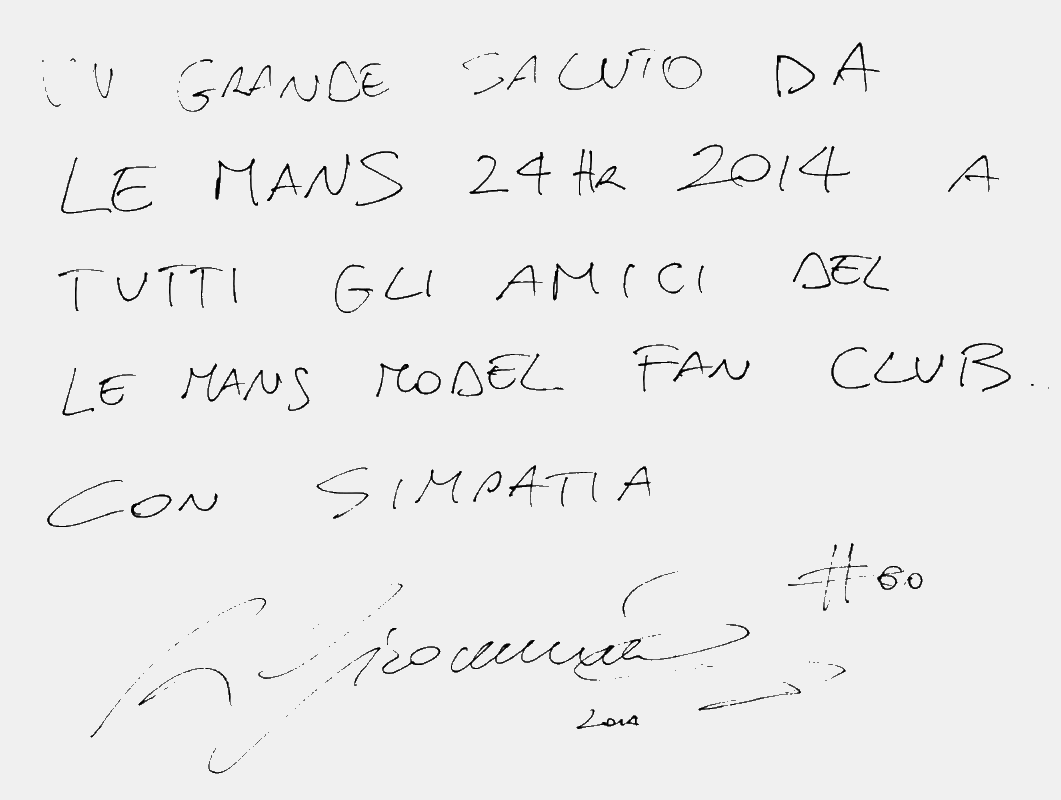 UN GRANDE SALUTO DA
LE MANS 24 HR 2014 A
TUTTI GLI AMICI DEL
LE MANS MODEL FAN CLUB..
CON SIMPATIA
#60
2014